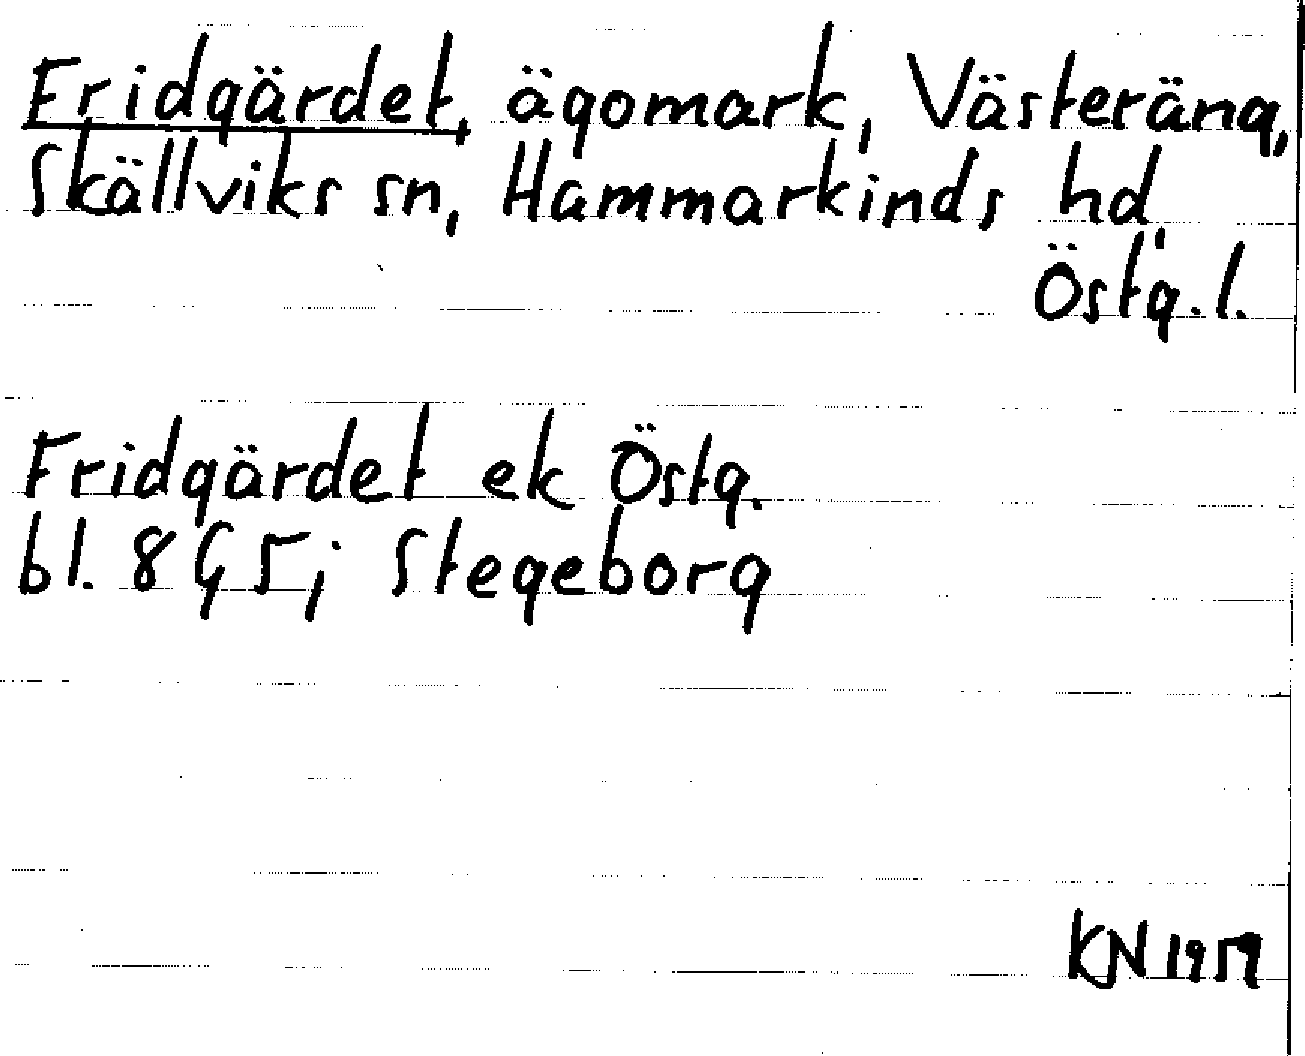 Fridgärdet, ägomark, Västeräng,
Skällviks sn, Hammarkinds hd,
Östg.l.
Fridgärdet ek Östg.
bl. 8 G 5; Stegeborg
KN 1959